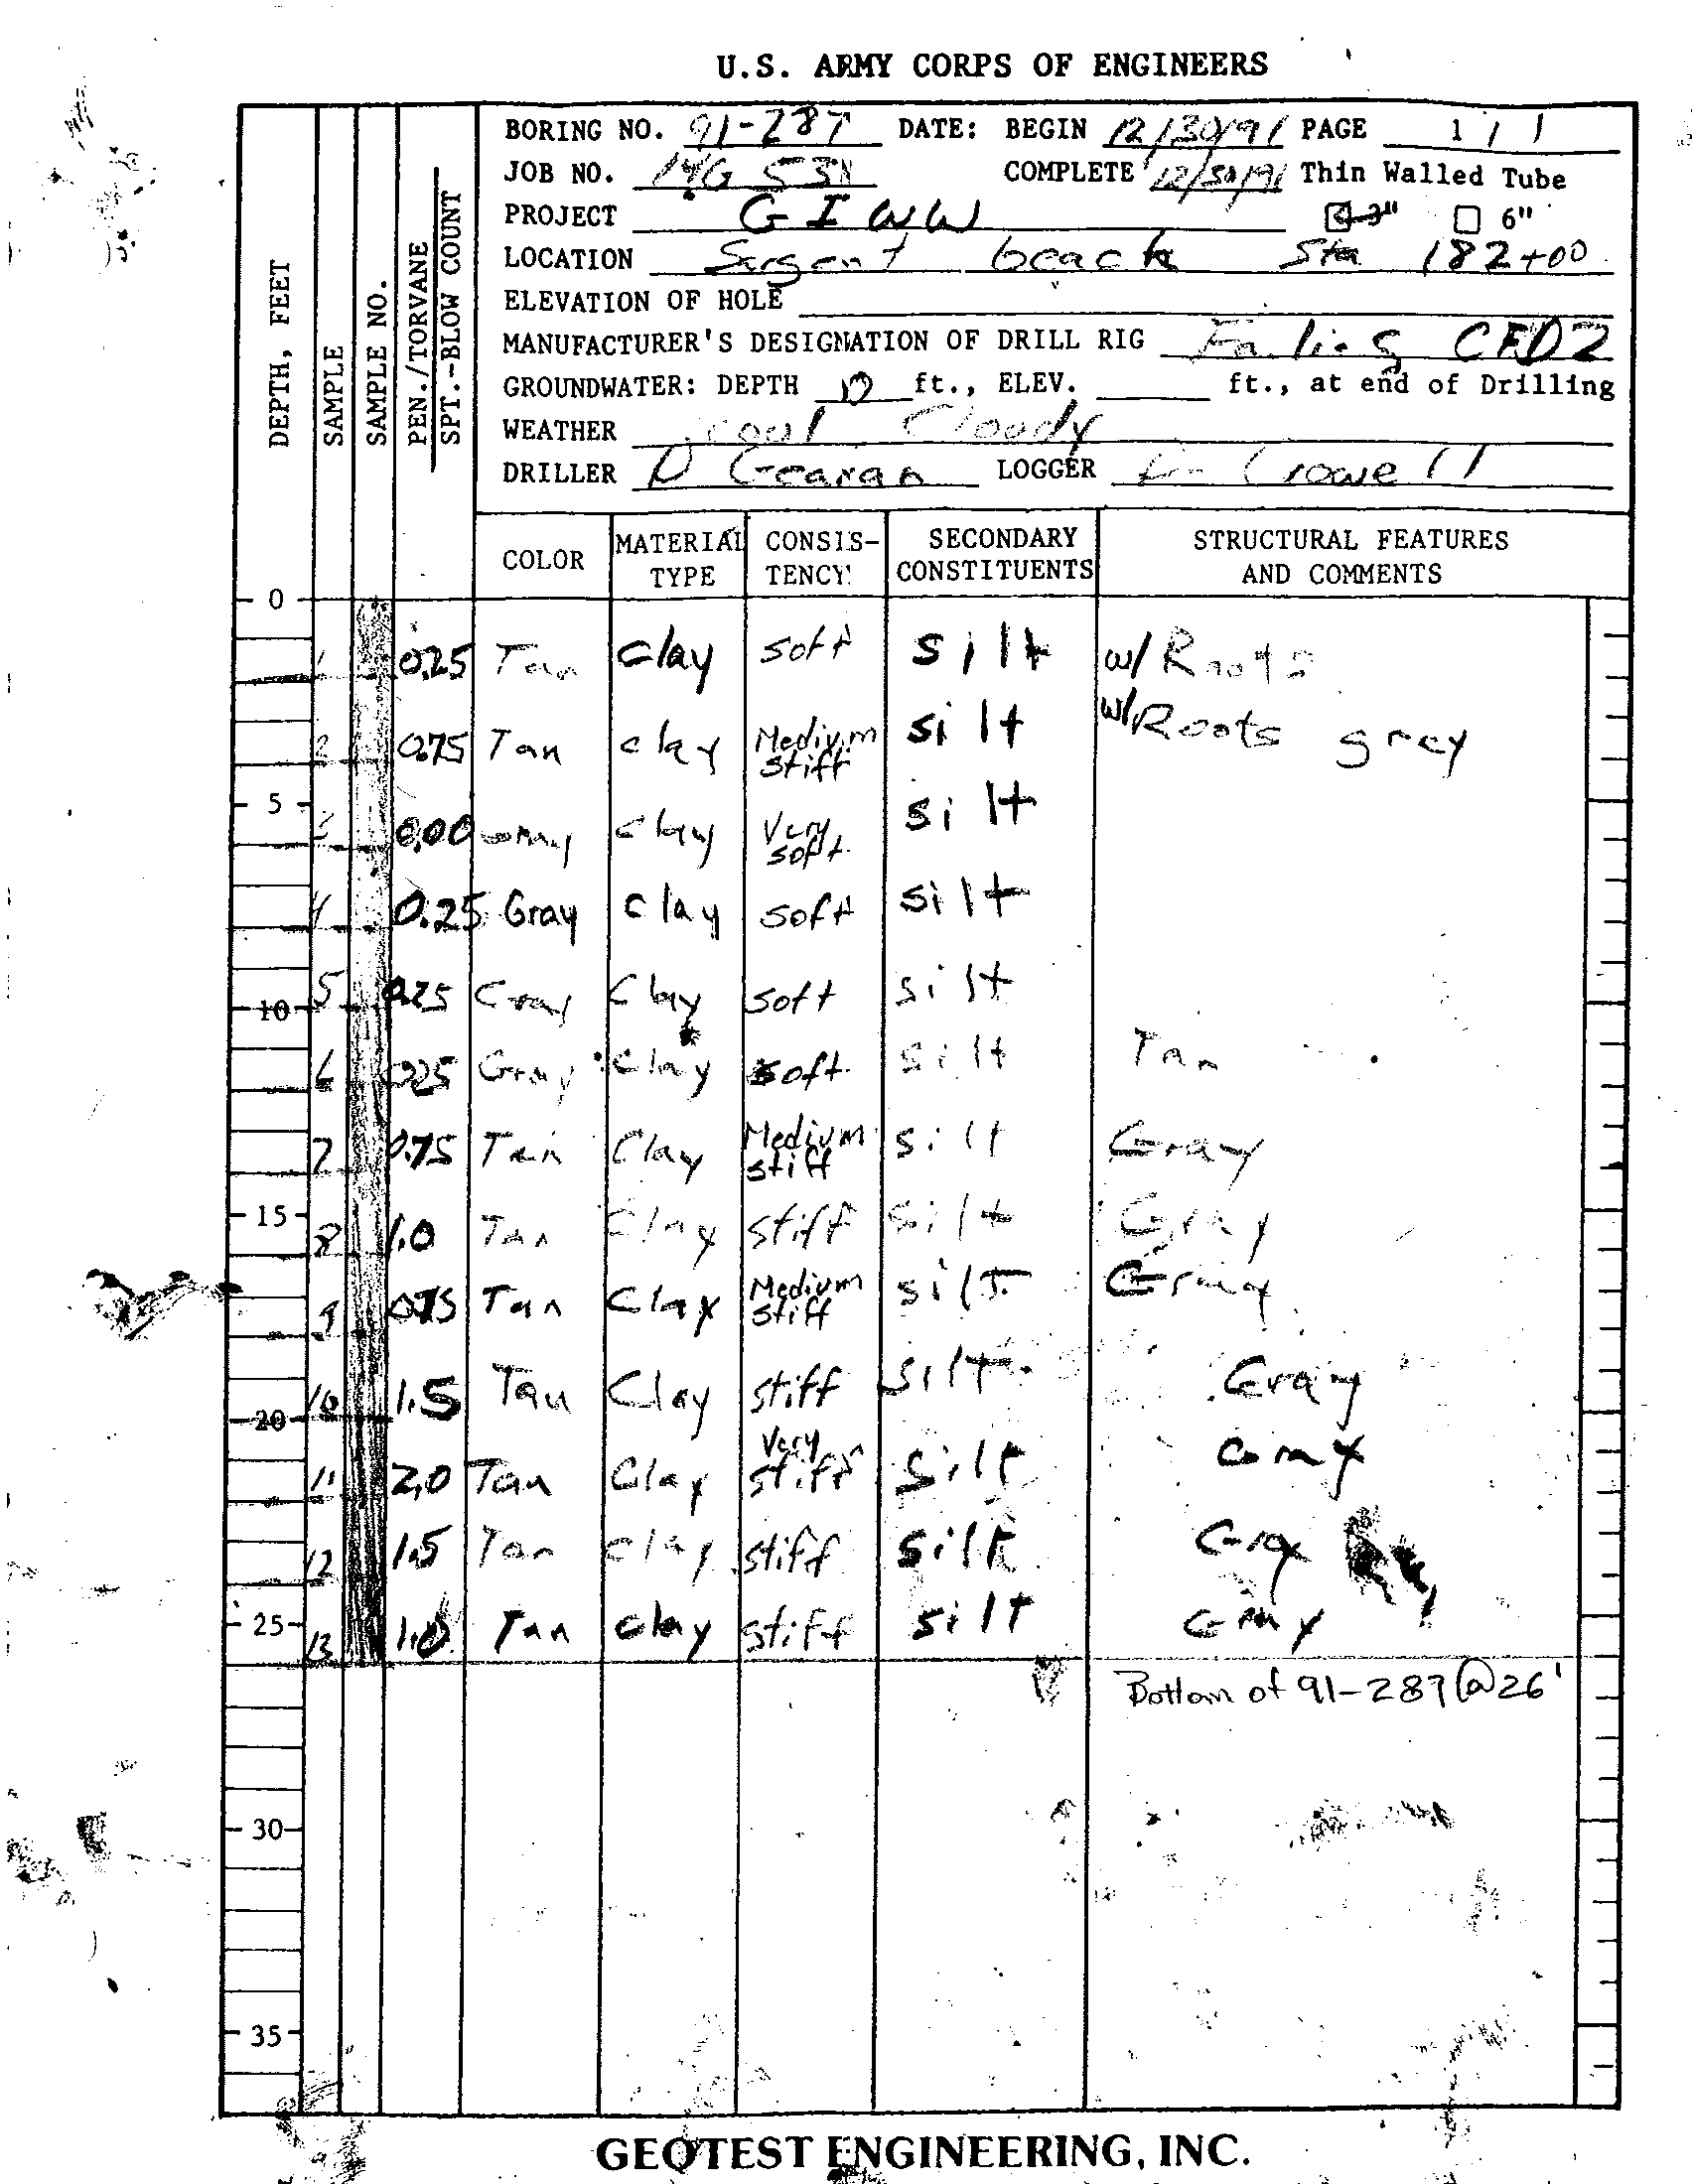 U.S. ARMY CORPS OF ENGINEERS
DEPTH, FEET
SAMPLE
SAMPLE NO.
PEN./TORVANE
SPT.-BLOW COUNT
BORING NO. 91-287 DATE: BEGIN 12/30/91 PAGE 1 / 1
JOB NO. COMPLETE 12/30/91 Thin Walled Tube
PROJECT G I W W 3" 6"
LOCATION Sargent beach Sta 182+00
ELEVATION OF HOLE
MANUFACTURER'S DESIGNATION OF DRILL RIG Failing
GROUNDWATER: DEPTH ft., ELEV. ft., at end of Drilling
WEATHER cool Cloudy
DRILLER D Gearan LOGGER Crowell
COLOR MATERIAL TYPE CONSIS-TENCY SECONDARY CONSTITUENTS STRUCTURAL FEATURES AND COMMENTS
0
1 0.25 Tan clay soft silt w/ Roots
2 0.75 Tan clay Medium stiff silt w/ Roots grey
5
3 0.00 Gray clay Very soft silt
4 0.25 Gray clay soft silt
5 0.25 Gray Clay soft silt
10
6 0.25 Gray Clay soft silt Tan
7 0.75 Tan Clay Medium stiff silt Gray
15
8 1.0 Tan Clay stiff silt Gray
9 0.75 Tan Clay Medium stiff silt Gray
10 1.5 Tan Clay stiff silt Gray
20
11 2.0 Tan Clay Very stiff silt Gray
12 1.5 Tan clay stiff silt Gray
25
13 1.0 Tan clay stiff silt Gray
Bottom of 91-287 @ 26'
30
35
GEOTEST ENGINEERING, INC.